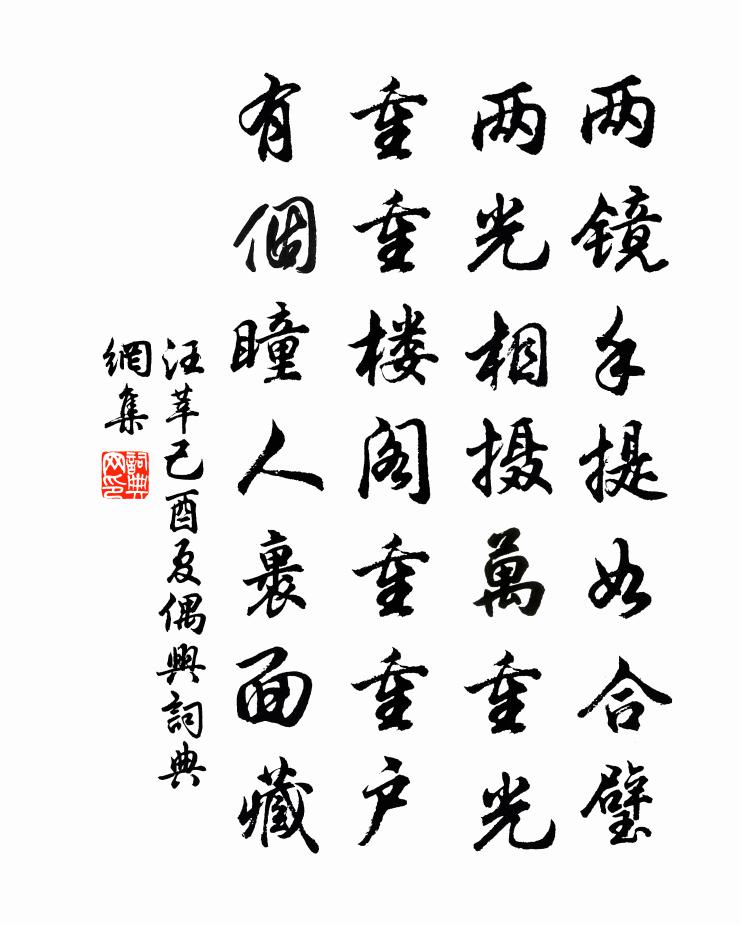 两镜手提如合璧
两光相摄萬重光
重重楼阁重重户
有個瞳人裹面藏
汪莘己酉夏偶興詞典
網集
詞典网印